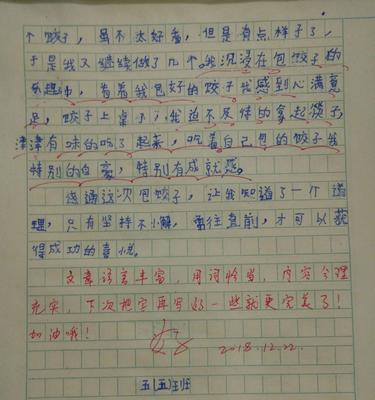 个饺子，虽不太好看，但是有点样子了，
于是我又继续做了几个。我沉浸在包饺子的
乐趣中，看着我包好的饺子我感到心满意
足，饺子上桌了，我迫不及待的拿起筷子，
津津有味的吃了起来，吃着自己包的饺子我
特别的自豪，特别有成就感。
通过这次包饺子，让我知道了一个道
理，只有坚持不懈，勇往直前，才可以获
得成功的喜悦。
文章语言丰富，用词恰当，内容合理
充实，下次把字再写好一些就更完美了！
加油哦！
2018.12.22.
五（五）班